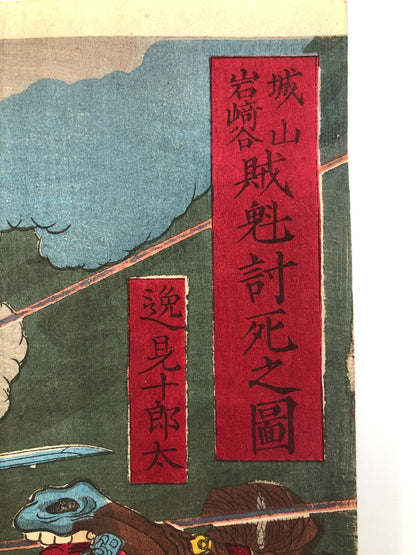 城山
岩﨑谷
賊魁討死之圖
逸見十郎太